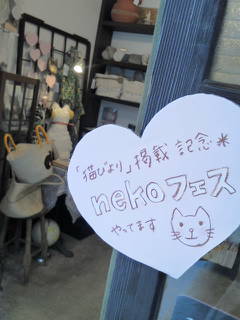 「猫びより」掲載記念*
nekoフェス
やってます